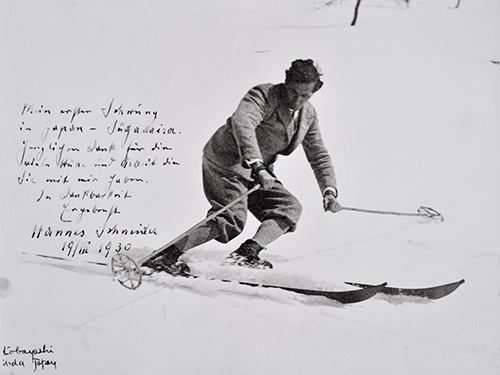 Mein ersten Schwung
in Japan - Sugadaira.
Herzlichen Dank für die
Mühe und Arbeit die
Sie mit mir haben.
In Dankbarkeit
Ergebenst
Hannes Schneider
19/III 1930
Kobayashi